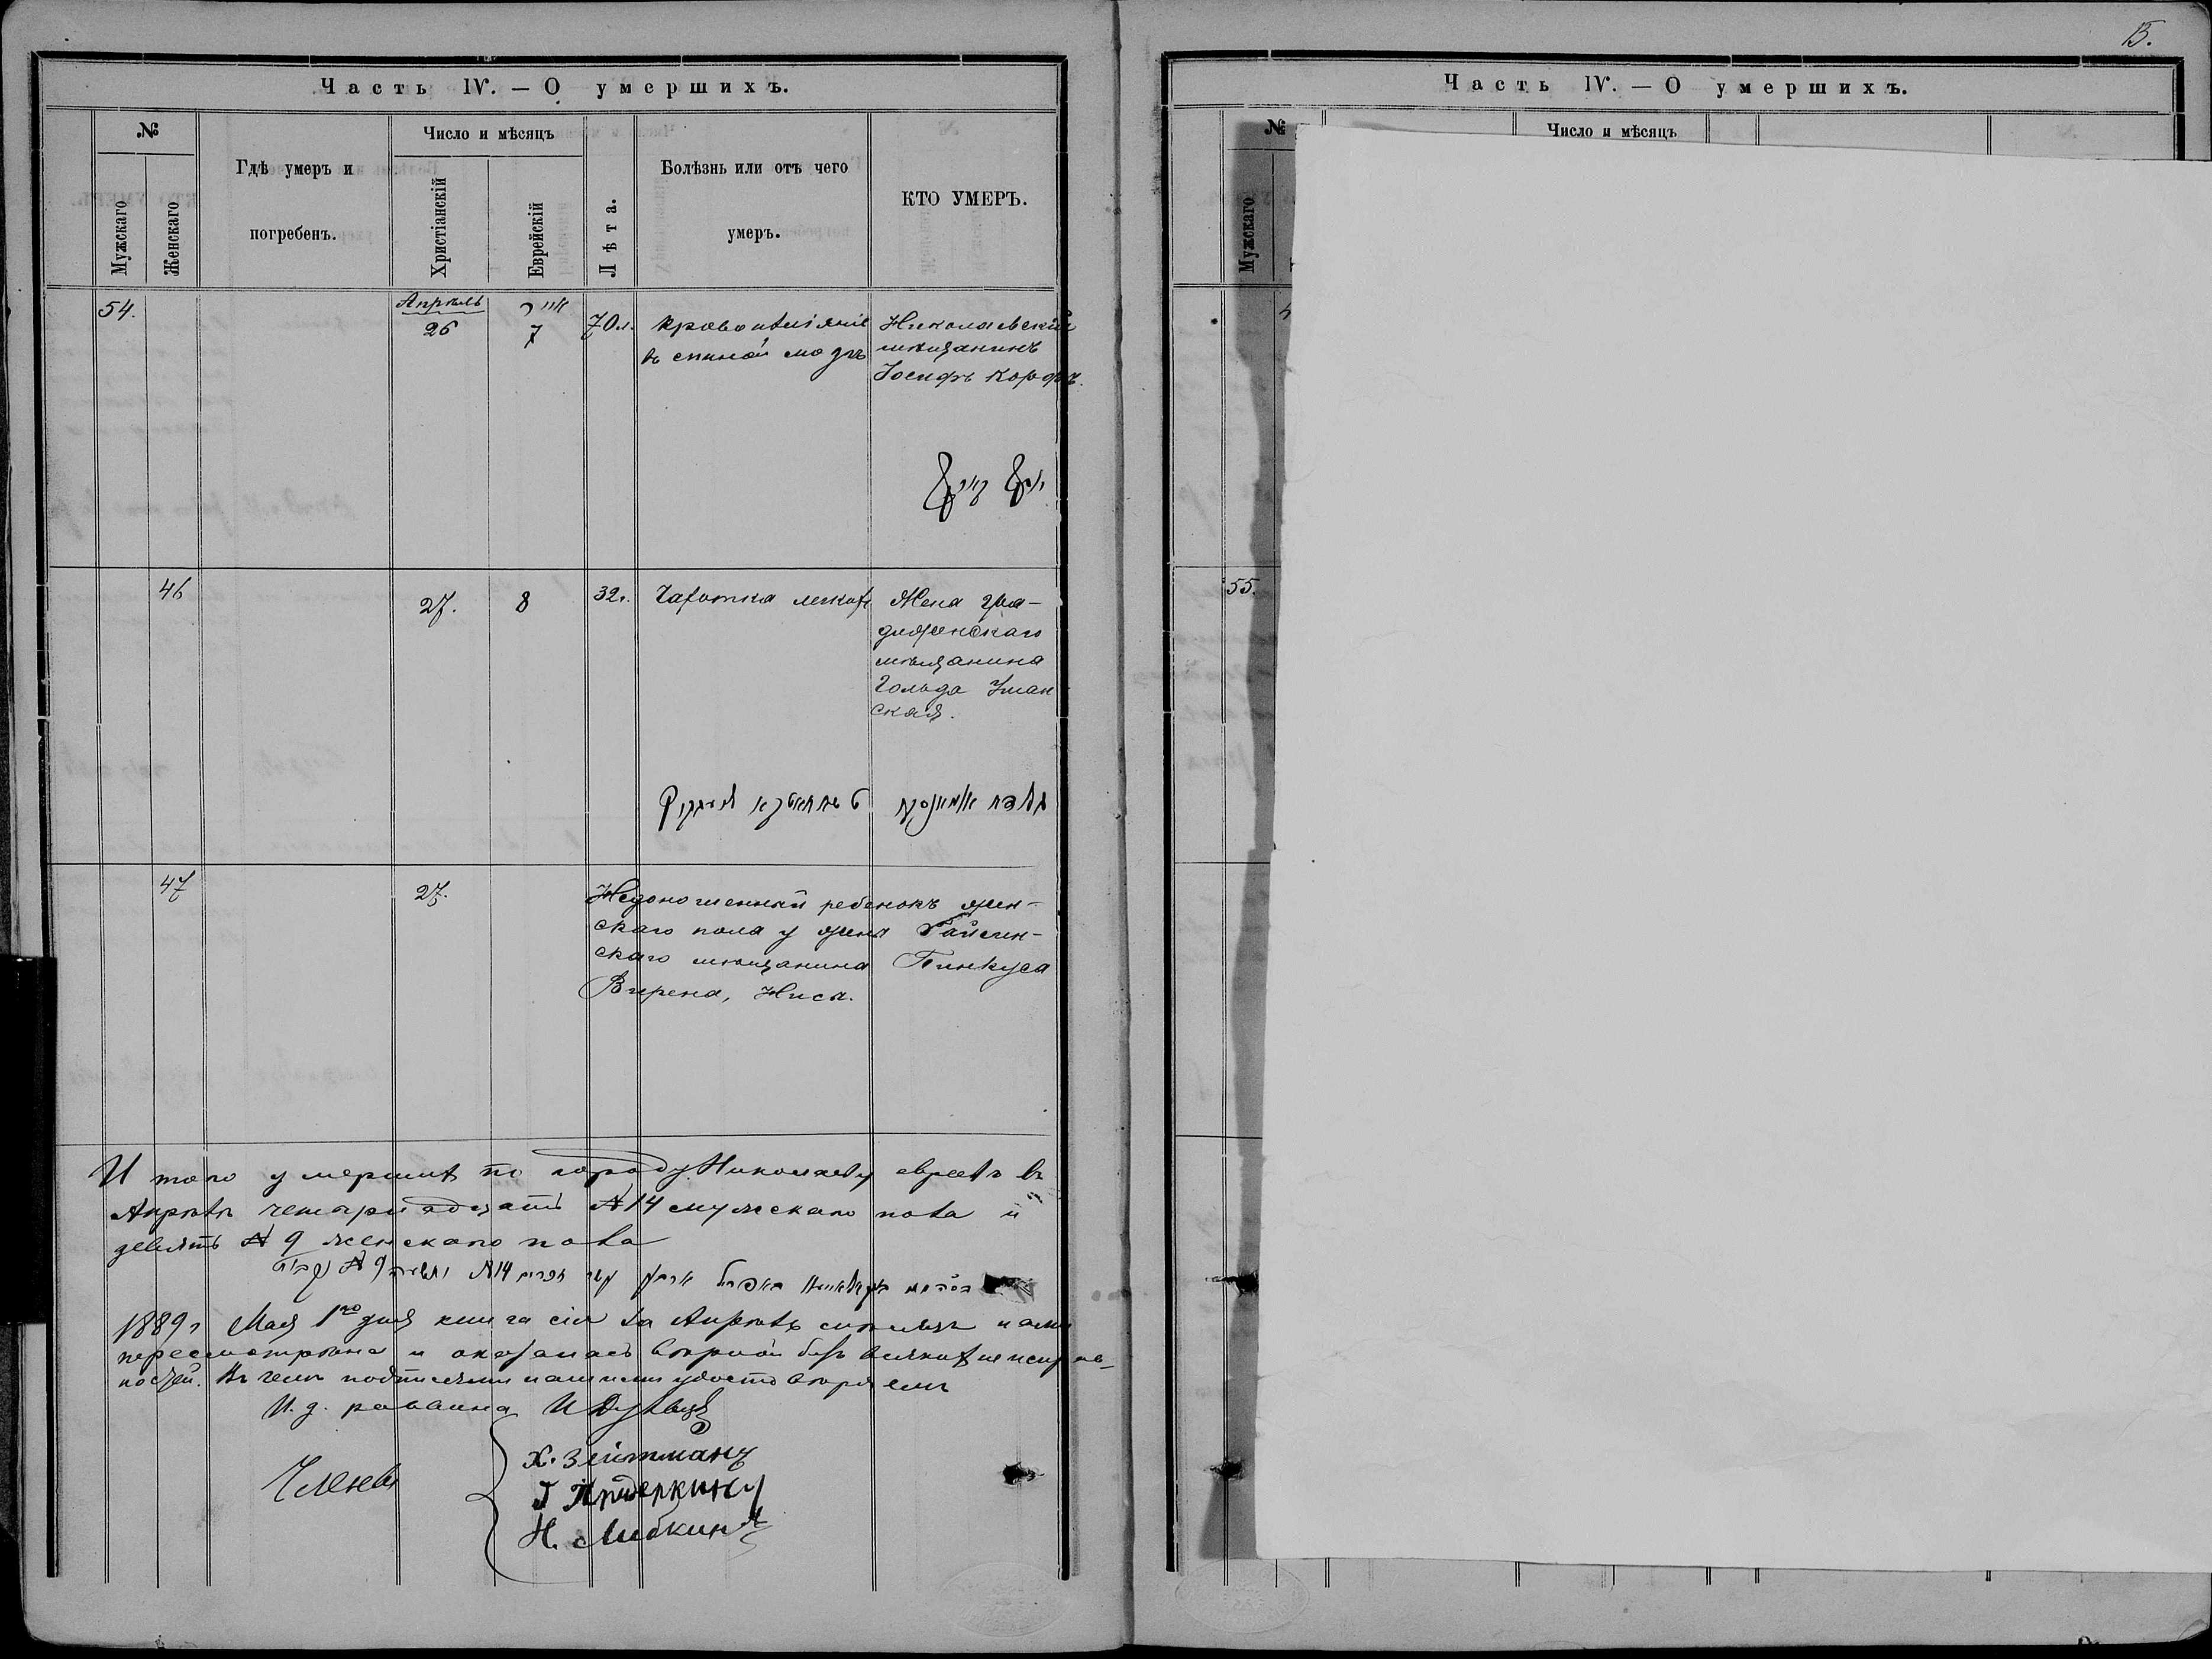 15.
Часть IV. — О умершихъ.
№
Мужскаго
Женскаго
Гдѣ умеръ и
погребенъ.
Число и мѣсяцъ
Христіанскій
Еврейскій
Лѣта.
Болѣзнь или отъ чего
умеръ.
КТО УМЕРЪ.
54.
Апрѣль
26
אייר
7
70 л.
Кровоизліяніе
въ спиной мозгъ
Николаевскій
мѣщанинъ
Іосифъ Корфъ.
46
27.
8
32 г.
Чахотка легкихъ
Жена гра-
дижскаго
мѣщанина
Гольда Уман
ская.
גאלדא אומאנסקי
47
27.
Недоношенный ребенокъ жен-
скаго пола у жены Гайсин-
скаго мѣщанина Пинкуса
Вирена, Ниси.
Итого умершихъ по городу Николаеву евреевъ въ
Апрѣлѣ четырнадцать № 14 мужскаго пола и
девять № 9 женскаго пола
1889 г Мая 1го дня книга сія за Апрѣль мѣсяцъ нами
пересмотрѣна и оказалась вѣрной безъ всякихъ неисправ-
ностей. Въ чемъ подписями нашими удостовѣряемъ
И. д. раввина
Члены
Х. Зейтманъ
Н. Либкинъ
Часть IV. — О умершихъ.
№
Число и мѣсяцъ
Мужскаго
55.